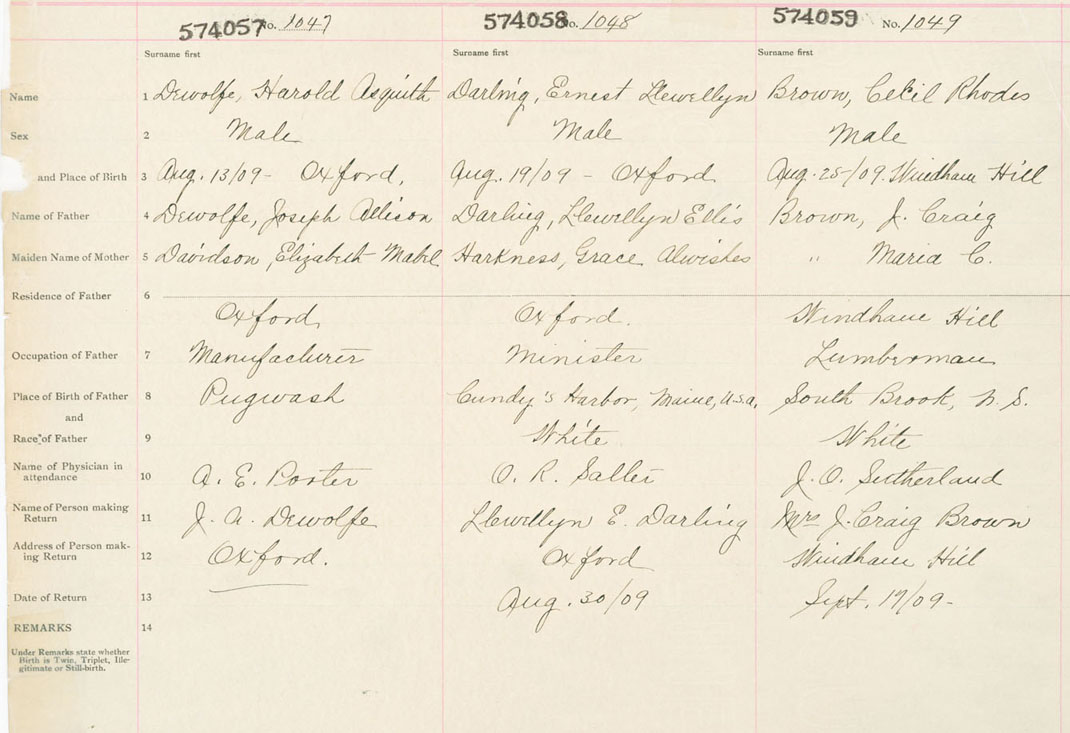 574057 No. 1047 574058 No. 1048 574059 No. 1049
Surname first Surname first Surname first
Name 1 Dewolfe, Harold Asquith Darling, Ernest Llewellyn Brown, Cecil Rhodes
Sex 2 Male Male Male
and Place of Birth 3 Aug. 13/09 - Oxford. Aug. 19/09 - Oxford Aug. 25/09. Windham Hill
Name of Father 4 Dewolfe, Joseph Allison Darling, Llewellyn Ellis Brown, J. Craig
Maiden Name of Mother 5 Davidson, Elizabeth Mabel Harkness, Grace Alwishes " Maria C.
Residence of Father 6
Oxford Oxford. Windham Hill
Occupation of Father 7 Manufacturer Minister Lumberman
Place of Birth of Father 8 Pugwash Cundy's Harbor, Maine, U.S.A. South Brook, N.S.
and
Race of Father 9 White White
Name of Physician in
attendance 10 A. E. Porter O. R. Salter J. O. Sutherland
Name of Person making
Return 11 J. A. Dewolfe Llewellyn E. Darling Mrs J. Craig Brown
Address of Person mak-
ing Return 12 Oxford. Oxford Windham Hill
Date of Return 13 Aug. 30/09 Sept. 17/09 -
REMARKS 14
Under Remarks state whether
Birth is Twin, Triplet, Ille-
gitimate or Still-birth.